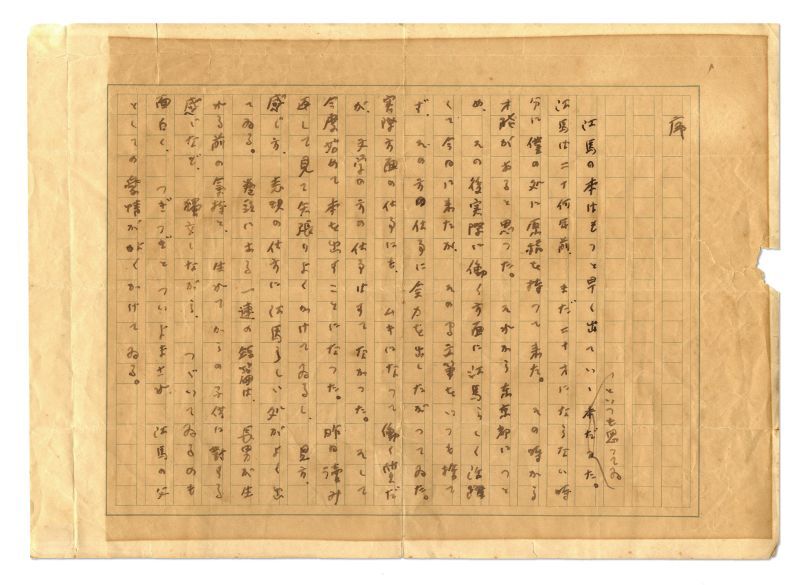 序
江馬の本はもつと早く出ていゝ本だつた。
といつも思つてゐ
江馬は二十何年前、まだ二十才にならない時
分に僕の処に原稿を持つて来た。その時から
才能があると思つた。それから東京都につと
め、その後実際に働く方面に江馬らしく活躍
して今日に来たが、その間文筆をいつも捨て
ず、その方の仕事に全力を出したがつてゐた。
実際方面の仕事にも、ムキになつて働く質だ
が、文学の方の仕事はすてなかつた。そして
今度始めて本を出すことになつた。昨日読み
返して見て矢張りよくかけてゐるし、見方、
感じ方、表現の仕方に江馬らしい処がよく出
てゐる。巻頭に出る一連の短篇は、長男が生
れる前の気持と、生れてからの子供に対する
感じなぞ、独立しながら、つづいてゐるのも
面白く、つぎつぎとついよまされ、江馬の父
としての愛情がよくかけてゐる。